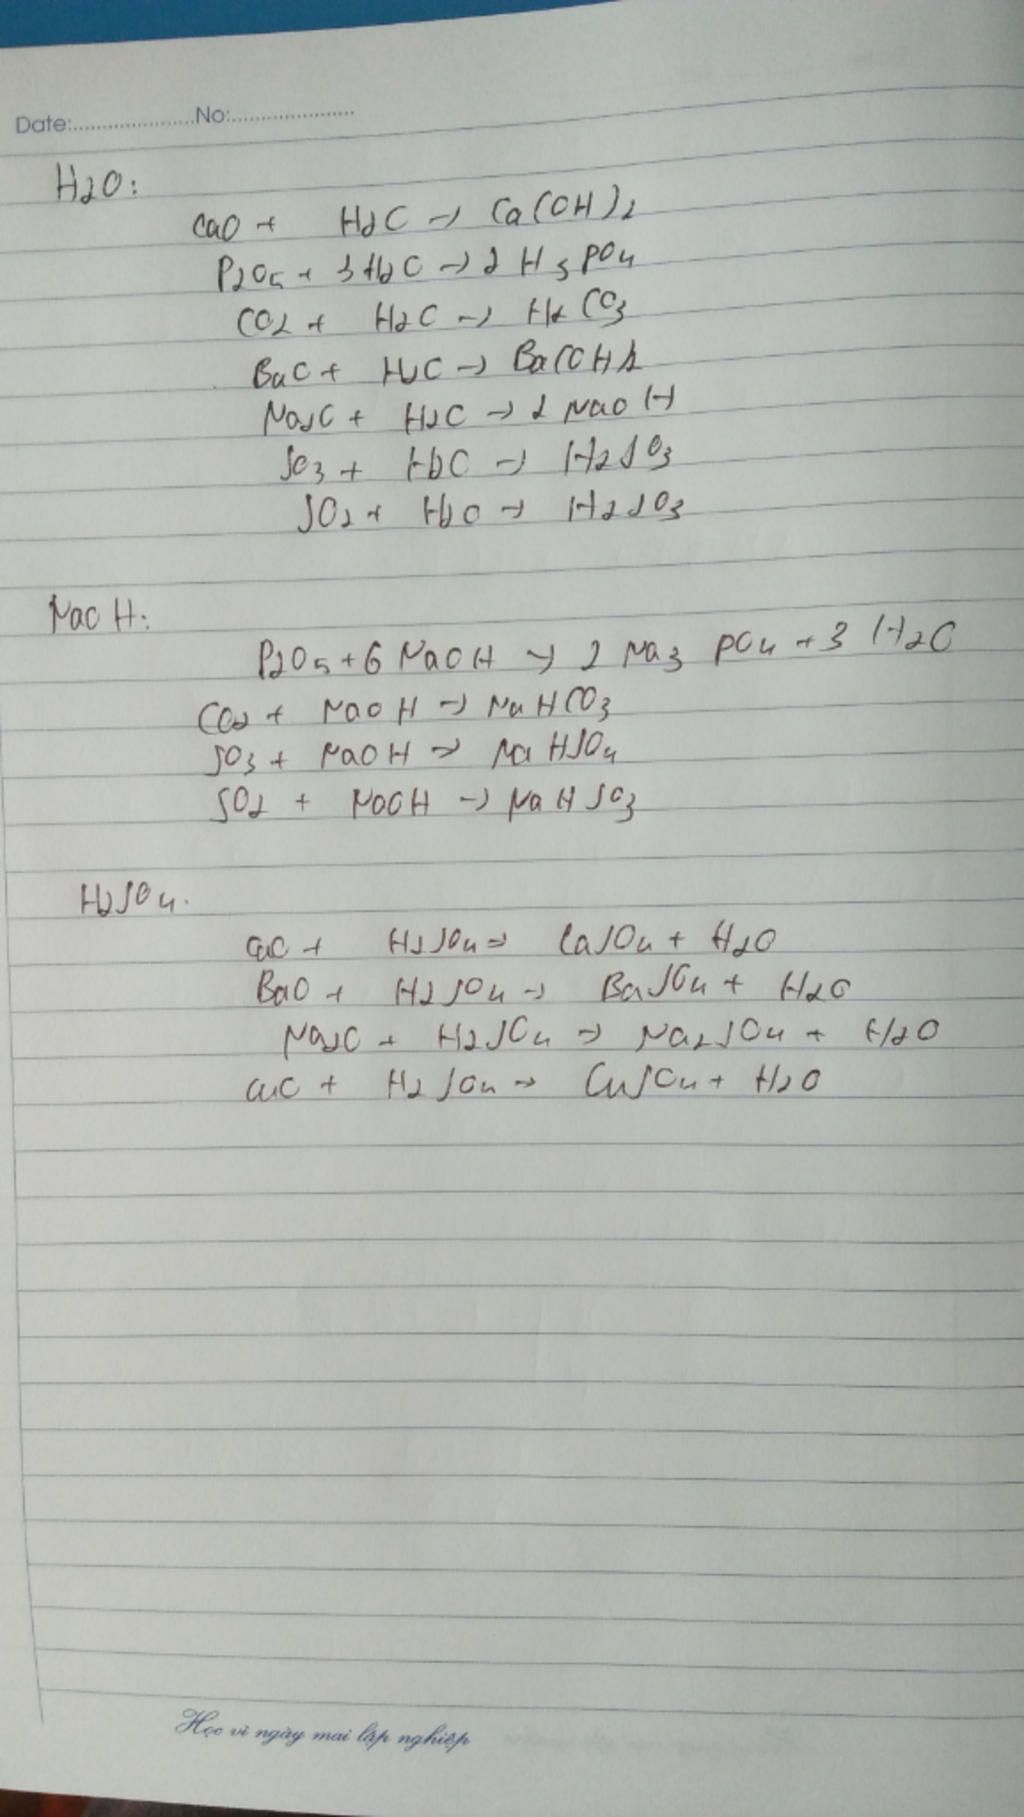 Date:.....................No:.....................
H2O:
CaO + H2O → Ca(OH)2
P2O5 + 3H2O → 2 H3PO4
CO2 + H2O → H2CO3
BaO + H2O → Ba(OH)2
Na2O + H2O → 2 NaOH
SO3 + H2O → H2SO3
SO2 + H2O → H2SO3
NaOH:
P2O5 + 6 NaOH → 2 Na3PO4 + 3 H2O
CO2 + NaOH → NaHCO3
SO3 + NaOH → NaHSO4
SO2 + NaOH → NaHSO3
H2SO4.
CaO + H2SO4 → CaSO4 + H2O
BaO + H2SO4 → BaSO4 + H2O
Na2O + H2SO4 → Na2SO4 + H2O
CuO + H2SO4 → CuSO4 + H2O
Học vì ngày mai lập nghiệp